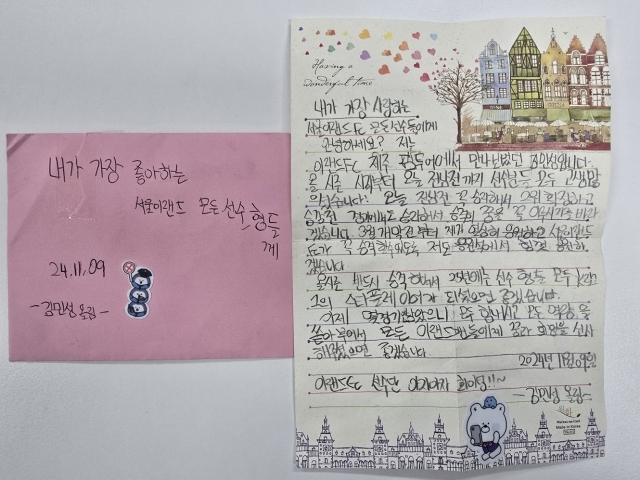 내가 가장 좋아하는
서울이랜드 모든 선수 형들
께
24.11.09
-김민성 올림-
Having a
wonderful time
내가 가장 사랑하는
서울이랜드FC 모든선수들에게
안녕하세요? 저는
이랜드FC 제주 팬 만나뵀었던 김민성입니다.
올 시즌 시작부터 오늘 전남전까지 선수분들 모두 고생많
으셨습니다. 오늘 전남전 꼭 승리해서 2위 확정하고
승강전 승리해서
겠습니다. 제가 열심히 응원하고 서울이랜드
FC가 꼭 승격할수있도록 저도 응원석에서 함께 응원하
겠습니다
올시즌 반드시 승격해서 25년에는 선수 형들 모두 K리그
1의 스타플레이어가 되셨으면 좋겠습니다.
이제 모두 힘내시고 모든 역량을
쏟아부어서 모든 이랜드팬들에게 꿈과 희망을 선사
해줬으면 좋겠습니다
2024년 11월 09일
이랜드FC 선수단 아자아자 화이팅!!~
-김민성 올림-
Made in Korea